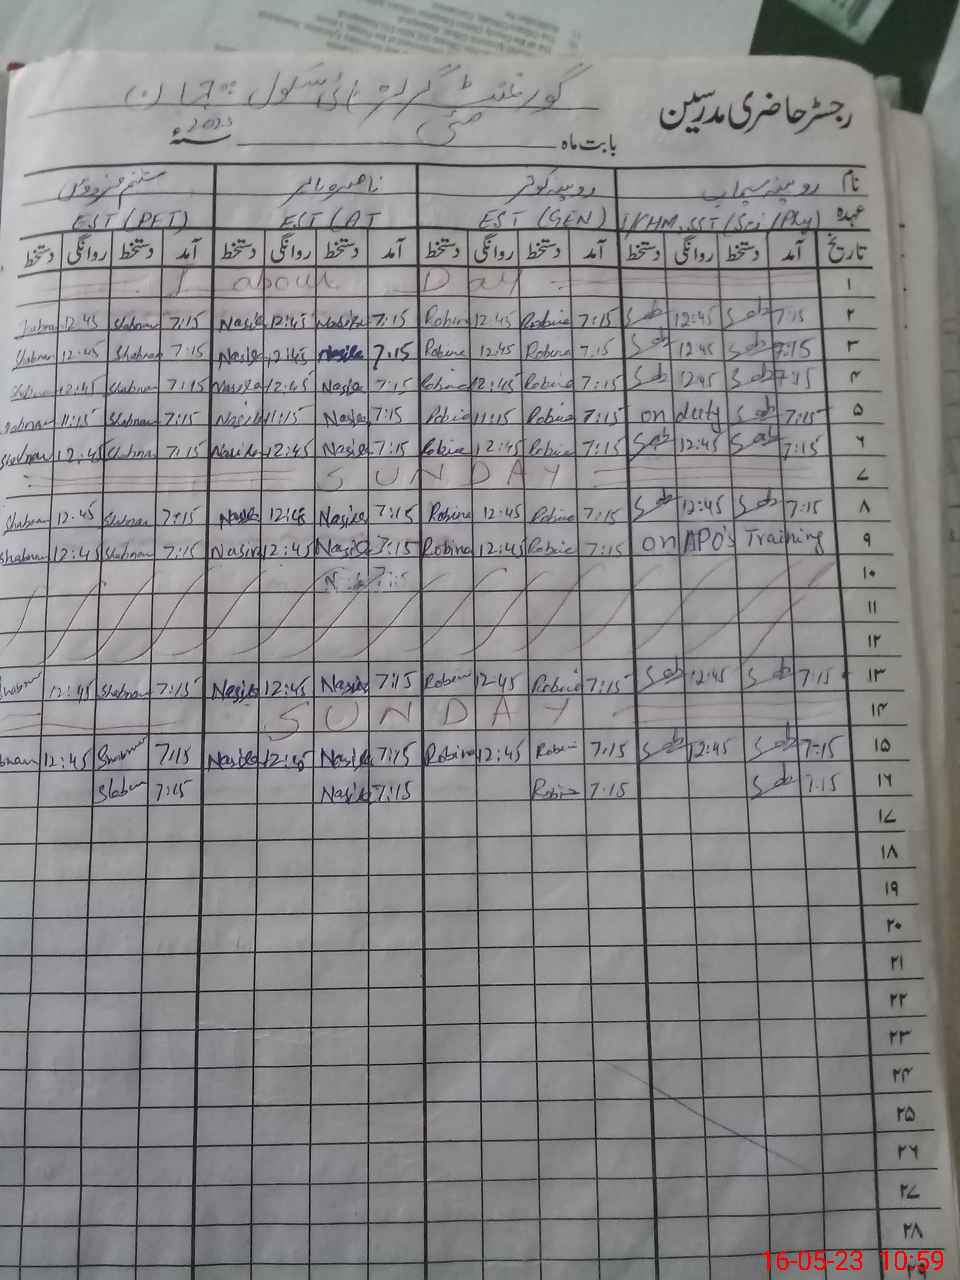 رجسٹر حاضری مدرسین
گورنمنٹ گرلز ہائی سکول
بابت ماہ مئی 2023 سنہ
نام روبینہ سیماب روبینہ کوثر شبنم فردوس
عہدہ I/KHM, SST (Sci/Phy) EST (GEN) EST (AT EST (PET)
تاریخ آمد دستخط روانگی دستخط آمد دستخط روانگی دستخط آمد دستخط روانگی دستخط آمد دستخط روانگی دستخط
۱ Labour Day
۲ 7:15 Sab 12:45 Sab 7:15 Robina 12:45 Robina 7:15 Nasila 12:45 Nasila 7:15 Shabnam 12:45 Shabnam
۳ 7:15 Sab 12:45 Sab 7:15 Robina 12:45 Robina 7:15 Nasila 12:45 Nasila 7:15 Shabnam 12:45 Shabnam
۴ 7:15 Sab 12:45 Sab 7:15 Robina 12:45 Robina 7:15 Nasila 12:45 Nasila 7:15 Shabnam 12:45 Shabnam
۵ 7:15 Sab on duty 7:15 Robina 11:15 Robina 7:15 Nasila 11:15 Nasila 7:15 Shabnam 11:15 Shabnam
۶ 7:15 Sab 12:45 Sab 7:15 Robina 12:45 Robina 7:15 Nasila 12:45 Nasila 7:15 Shabnam 12:45 Shabnam
۷ SUNDAY
۸ 7:15 Sab 12:45 Sab 7:15 Robina 12:45 Robina 7:15 Nasila 12:45 Nasila 7:15 Shabnam 12:45 Shabnam
۹ on APO's Training 7:15 Robina 12:45 Robina 7:15 Nasila 12:45 Nasila 7:15 Shabnam 12:45 Shabnam
۱۰ 7:15
۱۱
۱۲
۱۳ 7:15 Sab 12:45 Sab 7:15 Robina 12:45 Robina 7:15 Nasila 12:45 Nasila 7:15 Shabnam 12:45 Shabnam
۱۴ SUNDAY
۱۵ 7:15 Sab 12:45 Sab 7:15 Robina 12:45 Robina 7:15 Nasila 12:45 Nasila 7:15 Shabnam 12:45 Shabnam
۱۶ 7:15 Sab 7:15 Robina 7:15 Nasila 7:15 Shabnam
۱۷
۱۸
۱۹
۲۰
۲۱
۲۲
۲۳
۲۴
۲۵
۲۶
۲۷
۲۸
16-05-23 10:59